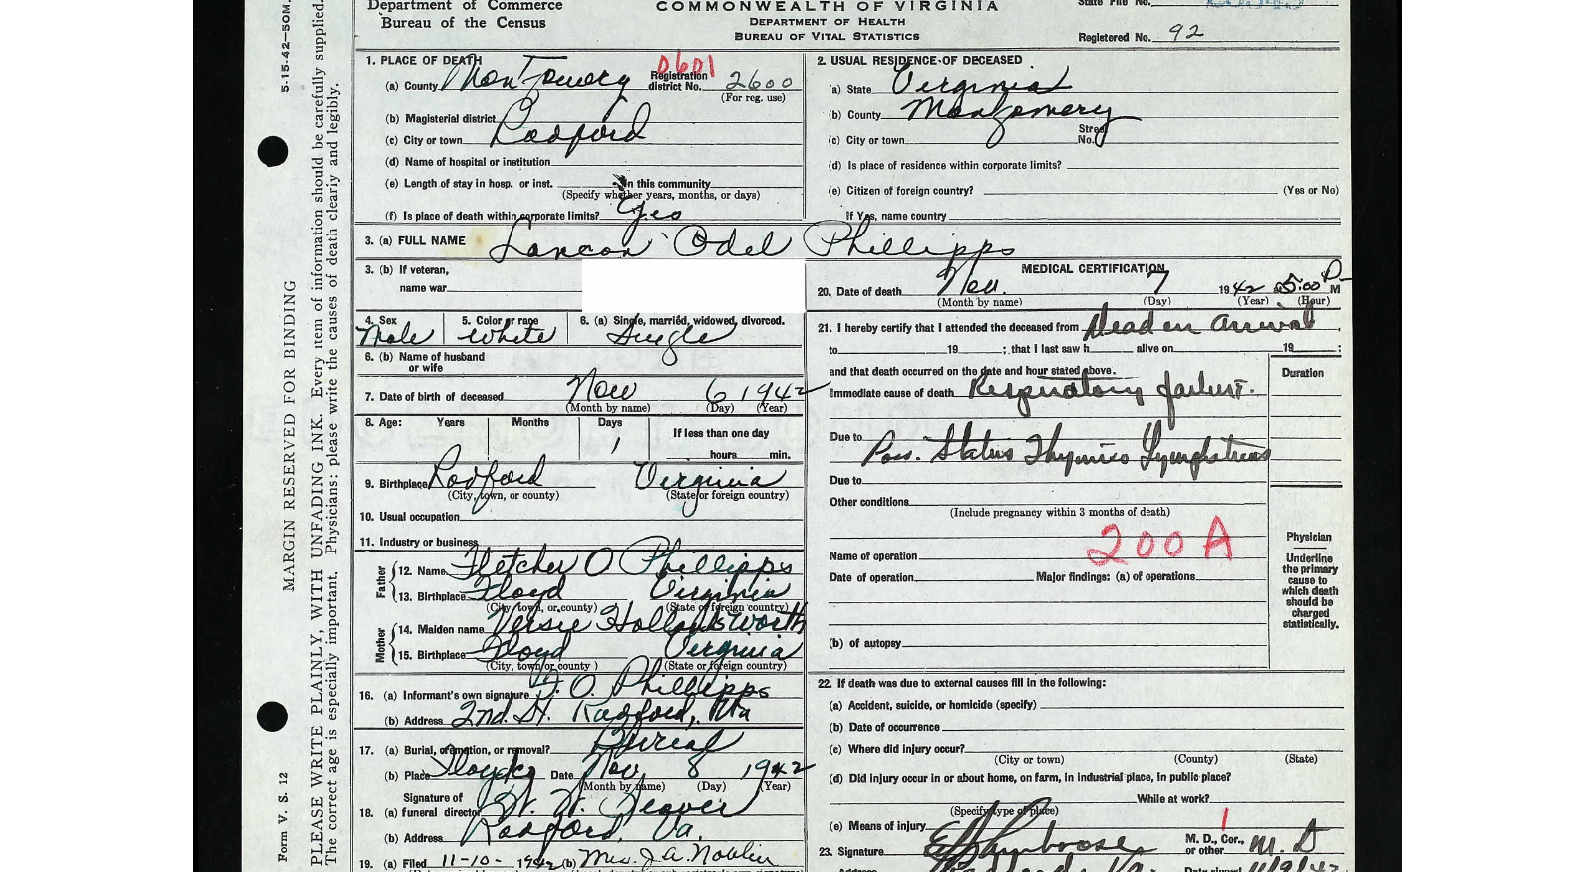 Department of Commerce
Bureau of the Census
COMMONWEALTH OF VIRGINIA
DEPARTMENT OF HEALTH
BUREAU OF VITAL STATISTICS
State File No.
Registered No. 92
5-15-42—50M.
MARGIN RESERVED FOR BINDING
PLEASE WRITE PLAINLY, WITH UNFADING INK. Every item of information should be carefully supplied.
The correct age is especially important. Physicians: please write the causes of death clearly and legibly.
Form V. S. 12
1. PLACE OF DEATH
0601
(a) County Montgomery Registration district No. 2600
(For reg. use)
(b) Magisterial district
(c) City or town Radford
(d) Name of hospital or institution
(e) Length of stay in hosp. or inst. In this community
(Specify whether years, months, or days)
(f) Is place of death within corporate limits? Yes
2. USUAL RESIDENCE OF DECEASED
(a) State Virginia
(b) County Montgomery
(c) City or town Street No.
(d) Is place of residence within corporate limits?
(e) Citizen of foreign country? (Yes or No)
If Yes, name country
3. (a) FULL NAME Odel Phillipps
3. (b) If veteran,
name war
4. Sex Male
5. Color or race White
6. (a) Single, married, widowed, divorced. Single
6. (b) Name of husband
or wife
7. Date of birth of deceased Nov 6 1942
(Month by name) (Day) (Year)
8. Age: Years Months Days 1 If less than one day
hours min.
9. Birthplace Radford Virginia
(City, town, or county) (State or foreign country)
10. Usual occupation
11. Industry or business
Father
12. Name Fletcher O Phillipps
13. Birthplace Floyd Virginia
(City, town, or county) (State or foreign country)
Mother
14. Maiden name Versie Hollandsworth
15. Birthplace Floyd Virginia
(City, town or county) (State or foreign country)
16. (a) Informant's own signature F. O. Phillipps
(b) Address 2nd. St. Radford, Va
17. (a) Burial, cremation, or removal? Burial
(b) Place Floyd Co Date Nov 8 1942
(Month by name) (Day) (Year)
Signature of
18. (a) funeral director
(b) Address Radford, Va.
19. (a) Filed 11-10-1942 (b) Mrs. J. A. Noblin
MEDICAL CERTIFICATION
20. Date of death Nov. 7 1942 at 5:00 P M
(Month by name) (Day) (Year) (Hour)
21. I hereby certify that I attended the deceased from Dead on arrival
to 19 ; that I last saw h alive on 19 ;
and that death occurred on the date and hour stated above.
Duration
Immediate cause of death Respiratory failure.
Due to Poss. Status Thymico Lymphaticus
Due to
Other conditions
(Include pregnancy within 3 months of death)
200 A
Name of operation
Date of operation Major findings: (a) of operations
(b) of autopsy
Physician
Underline
the primary
cause to
which death
should be
charged
statistically.
22. If death was due to external causes fill in the following:
(a) Accident, suicide, or homicide (specify)
(b) Date of occurrence
(c) Where did injury occur?
(City or town) (County) (State)
(d) Did injury occur in or about home, on farm, in industrial place, in public place?
While at work?
(Specify type of place)
(e) Means of injury
1
23. Signature M. D., Cor., or other M. D
Address Date signed 11/9/42